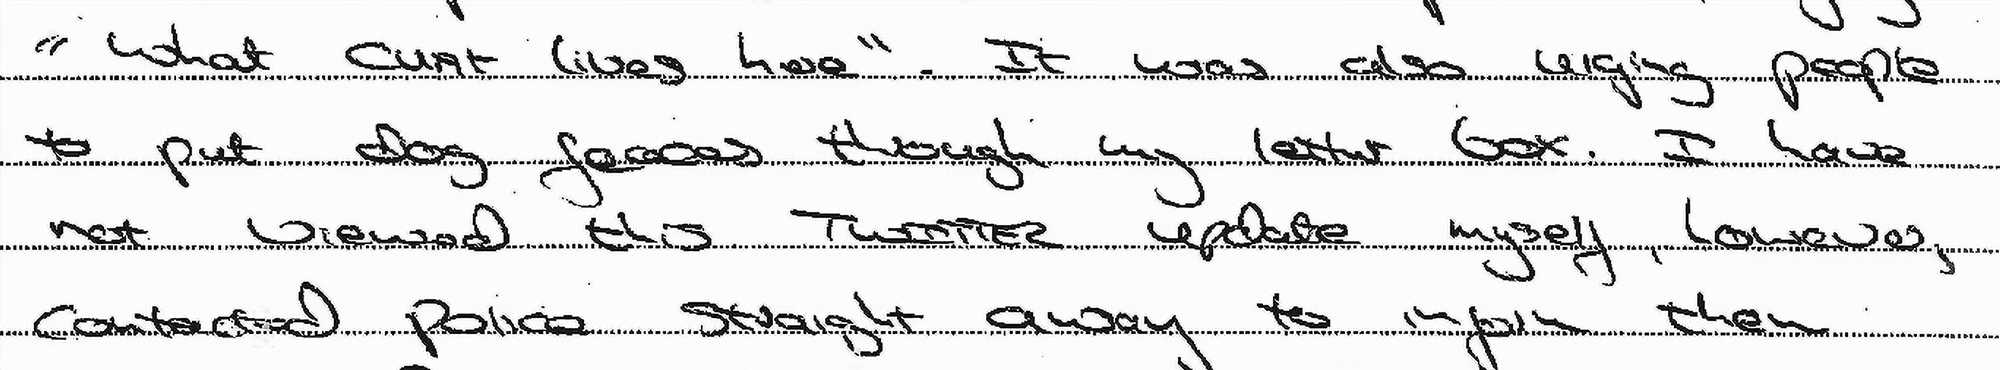 "What CUNT lives here". It was also urging people
to put dog feaces through my letter box. I have
not viewed this TWITTER update myself, however,
contacted police straight away to inform them